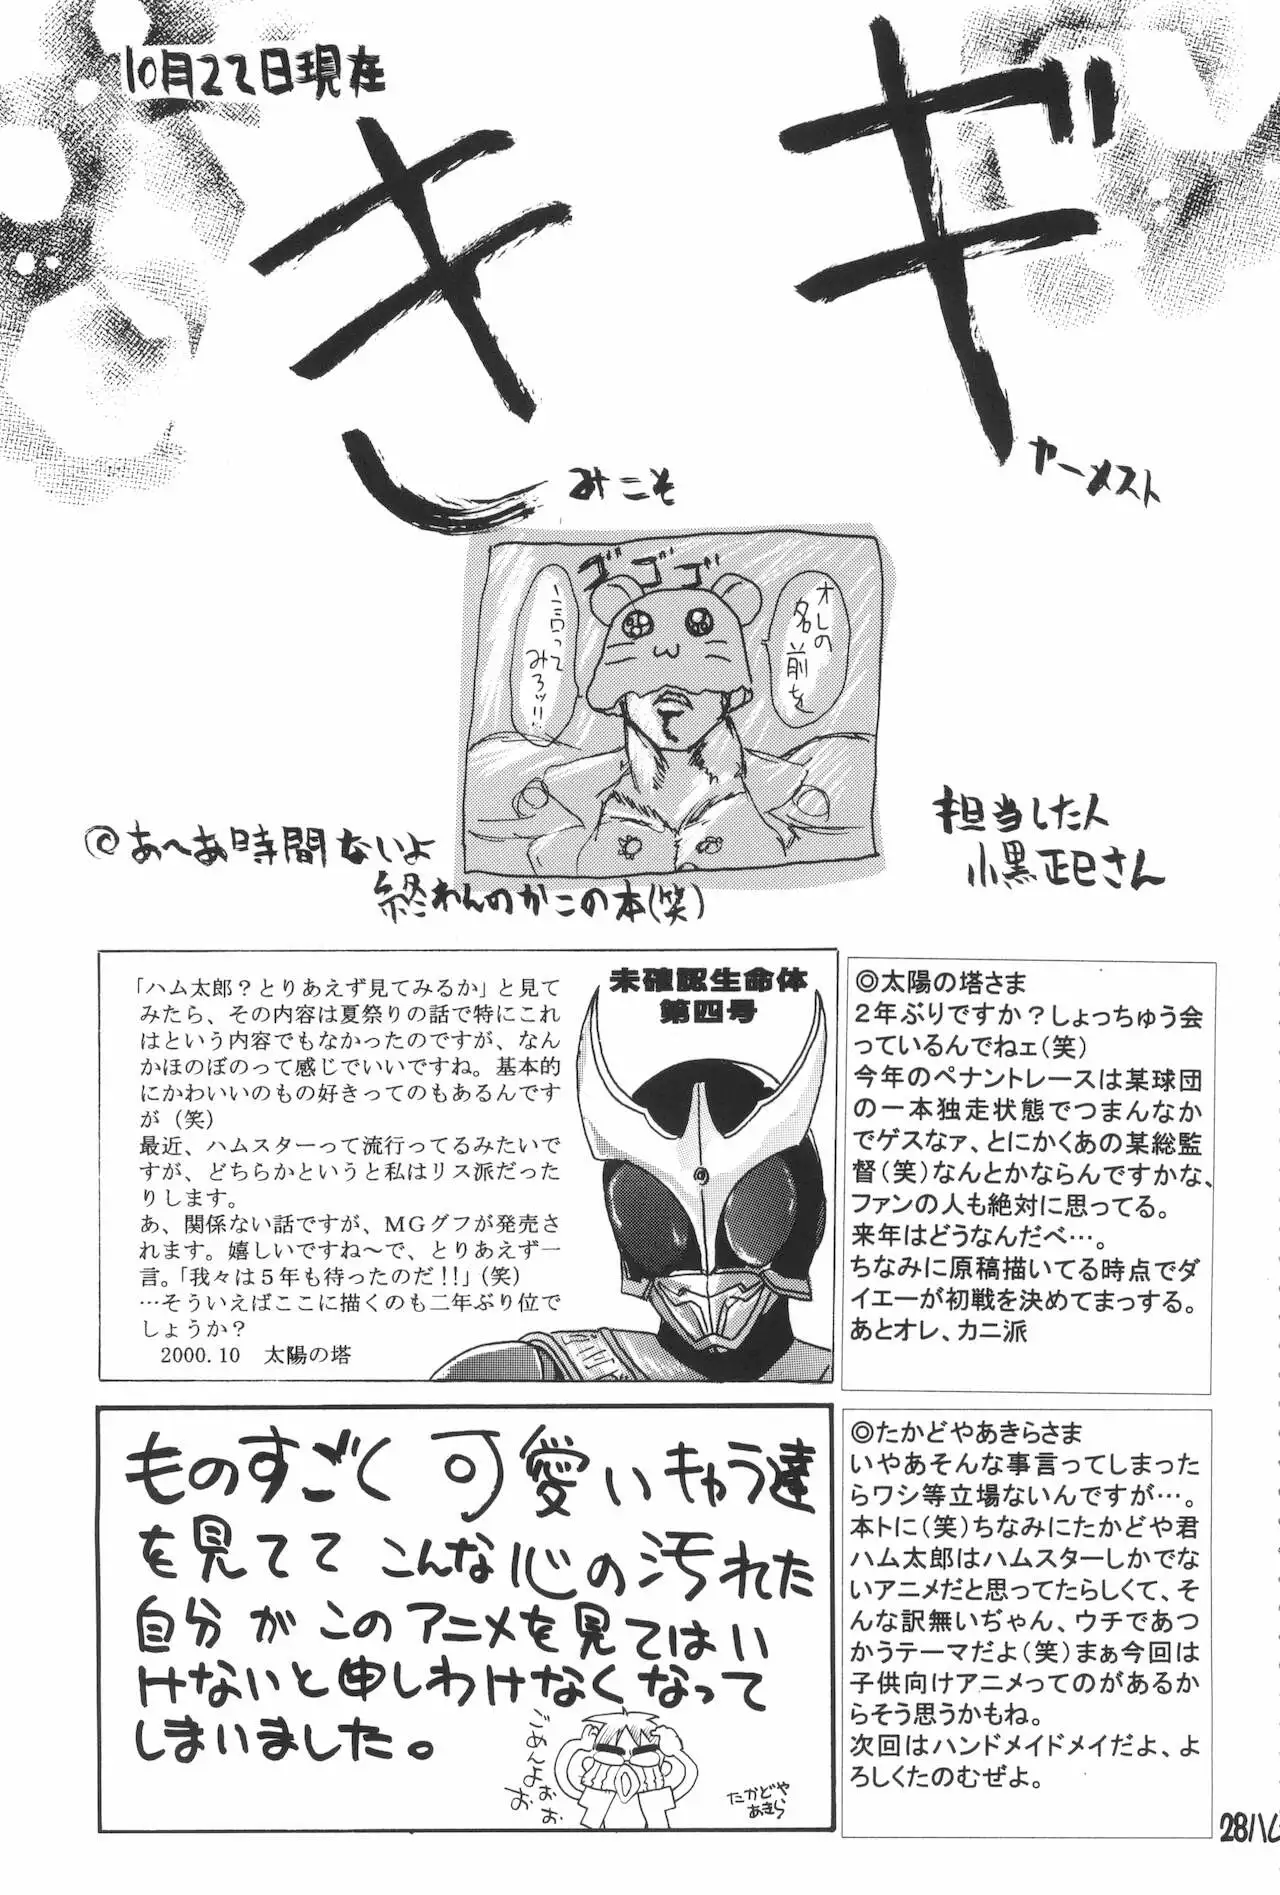 10月22日現在
ギ
き
ヤーメスト
みこそ
ゴゴゴ
オレの
名前を
言って
みろッ!!
担当した人
小黒正巳さん
◎あ〜あ時間ないよ
終わんのかこの本(笑)
「ハム太郎？とりあえず見てみるか」と見て
みたら、その内容は夏祭りの話で特にこれ
はという内容でもなかったのですが、なん
かほのぼのって感じでいいですね。基本的
にかわいいのもの好きってのもあるんです
が（笑）
最近、ハムスターって流行ってるみたいで
すが、どちらかというと私はリス派だった
りします。
あ、関係ない話ですが、ＭＧグフが発売さ
れます。嬉しいですね〜で、とりあえず一
言。「我々は５年も待ったのだ!!」（笑）
…そういえばここに描くのも二年ぶり位で
しょうか？
2000.10　太陽の塔
未確認生命体
第四号
◎太陽の塔さま
２年ぶりですか？しょっちゅう会
っているんでねェ（笑）
今年のペナントレースは某球団
の一本独走状態でつまんなか
でゲスなァ、とにかくあの某総監
督（笑）なんとかならんですかな、
ファンの人も絶対に思ってる。
来年はどうなんだべ…。
ちなみに原稿描いてる時点でダ
イエーが初戦を決めてまっする。
あとオレ、カニ派
ものすごく可愛いキャラ達
を見てて こんな心の汚れた
自分がこのアニメを見てはい
けないと申しわけなくなって
しまいました。
ごめんよぉぉ
お
たかどや
あきら
◎たかどやあきらさま
いやあそんな事言ってしまった
らワシ等立場ないんですが…。
本トに（笑）ちなみにたかどや君
ハム太郎はハムスターしかでな
いアニメだと思ってたらしくて、そ
んな訳無いぢゃん、ウチであつ
かうテーマだよ（笑）まぁ今回は
子供向けアニメってのがあるか
らそう思うかもね。
次回はハンドメイドメイだよ、よ
ろしくたのむぜよ。
28ハム